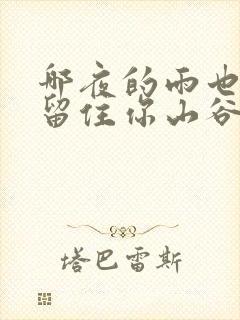 那夜的雨也
留住你山谷
塔巴雷斯